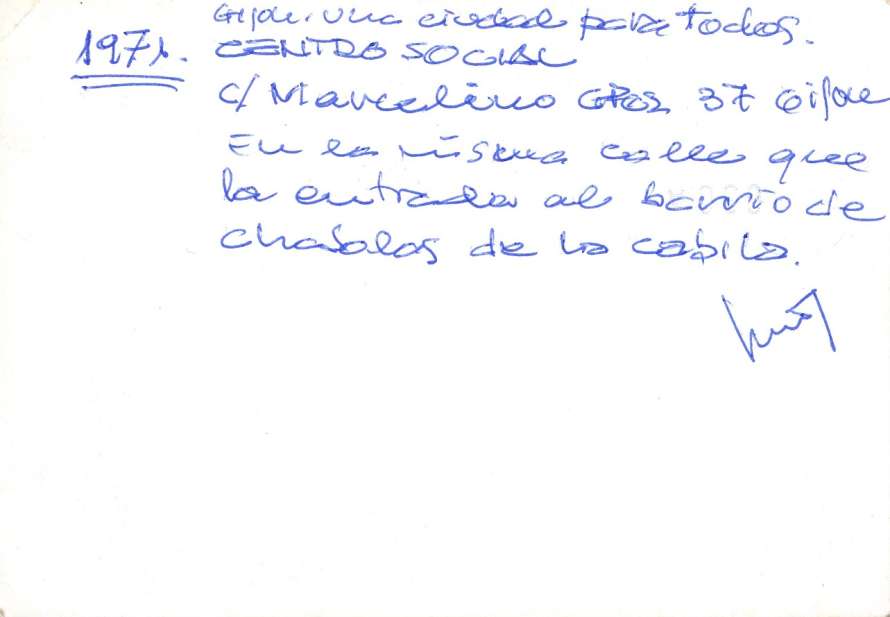 Gijón. una ciudad para todos.
1971. CENTRO SOCIAL
c/ Marcelino Glez 37 Gijón
En la misma calle que
la entrada al barrio de
chabolas de la cabila.